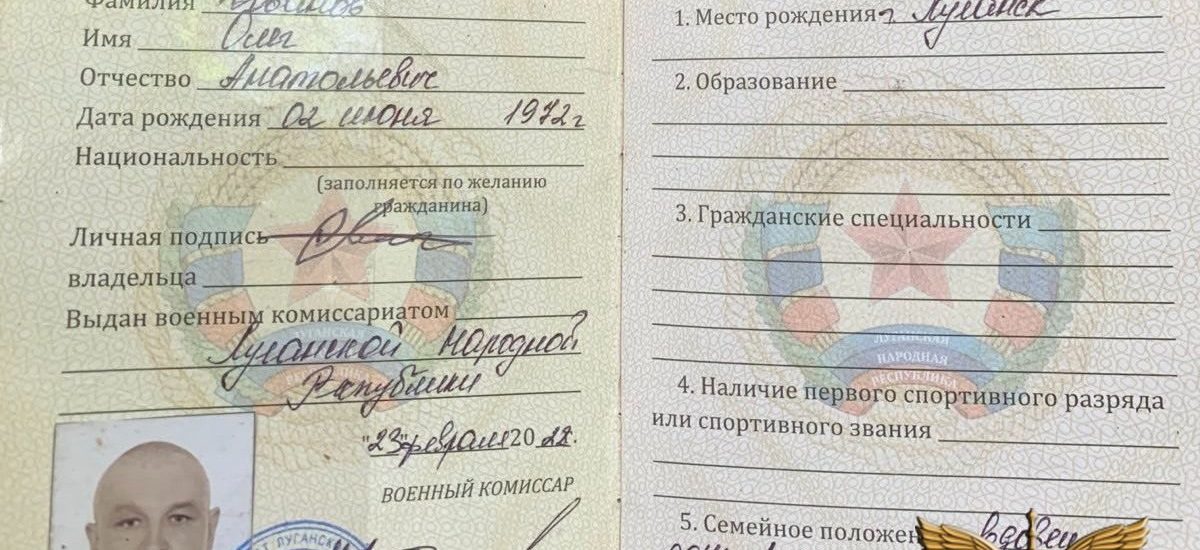 Фамилия
Имя Олег
Отчество Анатольевич
Дата рождения 02 июня 1972г
Национальность
(заполняется по желанию
гражданина)
Личная подпись
владельца
Выдан военным комиссариатом
Луганской Народной
Республики
"23" февраля 2022.
ВОЕННЫЙ КОМИССАР
ЛУГАНСКАЯ
НАРОДНАЯ
РЕСПУБЛИКА
ЛУГАНСК
1. Место рождения г Луганск
2. Образование
3. Гражданские специальности
ЛУГАНСКАЯ
НАРОДНАЯ
РЕСПУБЛИКА
4. Наличие первого спортивного разряда
или спортивного звания
5. Семейное положен вдовец